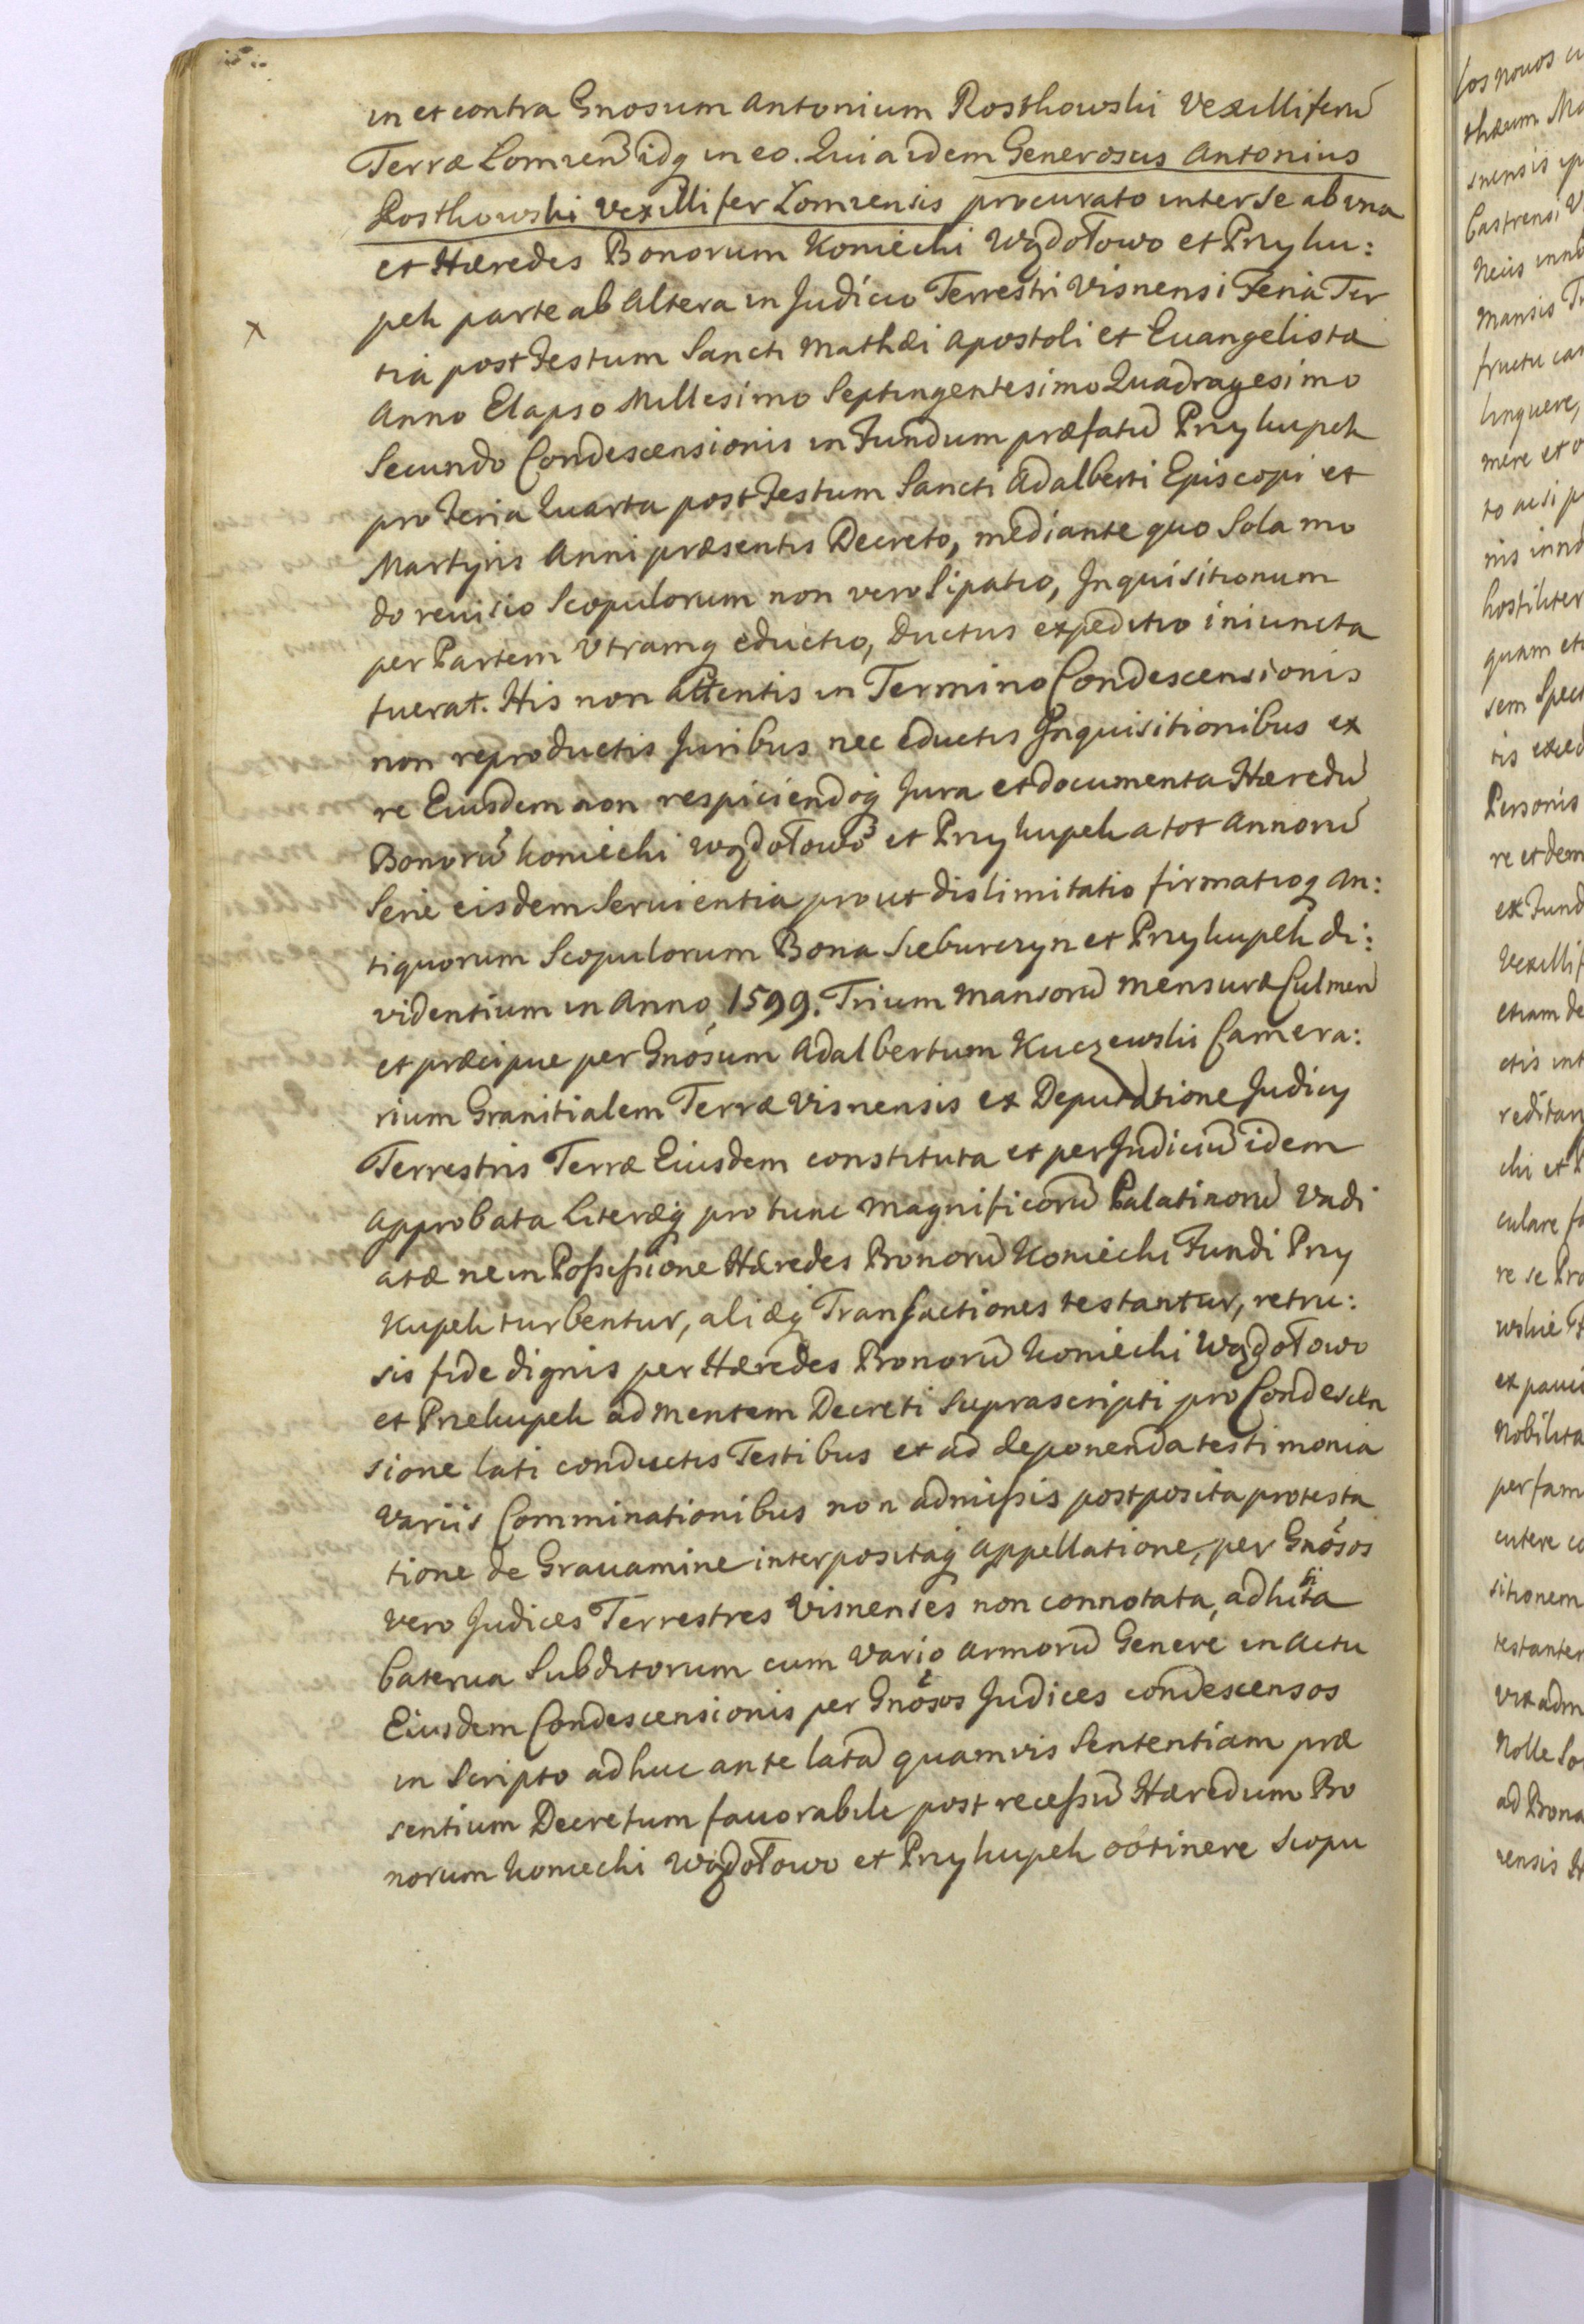 in et contra Gnosum Antonium Rosthowski Vexilliferū
Terræ Lomzen̄ idq in eo. Quia idem Generosus Antonius
Rosthowski Vexillifer Lomzensis procurato inter se ab una
et Hæredes Bonorum Koniechi Wądołowo et Przyku:
pek parte ab altera in Judicio Terrestri Visnensi Feria Ter
tia post Festum Sancti Mathæi Apostoli et Euangelistæ
Anno Elapso Millesimo Septingentesimo Quadragesimo
Secundo Condescensionis in Fundum præfatū Przykupek
pro Feria Quarta post Festum Sancti Adalberti Episcopi et
Martyris Anni præsentis Decreto, mediante quo Sola mo
do reuisio Scopulorum non vero Sipatio, Inquisitionum
per Partem Utramq eductio, Ductus expeditio iniuncta
fuerat. His non attentis in Termino Condescensionis
non reproductis Juribus nec eductis Inquisitionibus ex
re Eiusdem non respiciendoq Jura et documenta Hæredū
Bonorū Koniechi Wądołowo et Przykupek a tot Annorū
Serie eisdem Seruientia prout dislimitatio firmatioq An:
tiquorum Scopulorum Bona Sieburczyn et Przykupek di:
videntium in Anno 1599. Trium Mansorū Mensuræ Culmen̄
et præcipue per Gnosum Adalbertum Kuczewski Camera:
rium Granitialem Terræ Visnensis ex Deputatione Judicy
Terrestris Terræ Eiusdem constituta et per Judiciū idem
Approbata Literæq pro tunc Magnificorū Palatinorū Vadi
atæ ne in Possessione Hæredes Bonorū Koniechi Fundi Przy
kupek turbentur, aliæq Transactiones testantur, retru:
sis fide dignis per Hæredes Bonorū Koniechi Wądołowo
et Przekupek ad Mentem Decreti Suprascripti pro Condescen
sione lati conductis Testibus et ad deponenda testimonia
Variis Comminationibus non admissis postposita protesta
tione de Grauamine interpositaq Appellatione, per Gnosos
vero Judices Terrestres Visnenses non connotata, adhibita
Caterua Subditorum cum Vario Armorū Genere in Actu
Eiusdem Condescensionis per Gnosos Judices condescensos
in Scripto adhuc ante latā quamvis Sententiam præ
sentium Decretum fauorabile post recessū Hæredum Bo
norum Koniechi Wądołowo et Przykupek obtinere Scopu